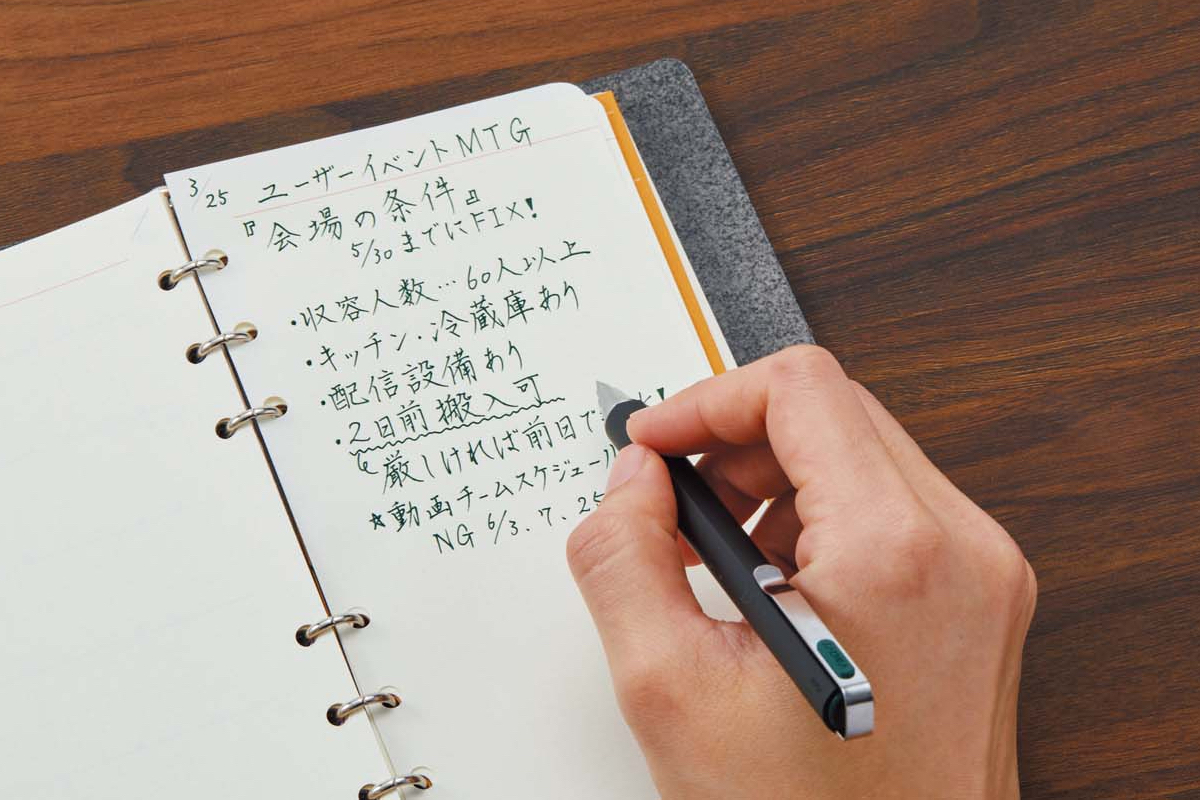 3/25 ユーザーイベントMTG
『会場の条件』
5/30までにFIX!
・収容人数…60人以上
・キッチン・冷蔵庫あり
・配信設備あり
・2日前搬入可
厳しければ前日で
☆動画チームスケジュール
NG 6/3.7、25